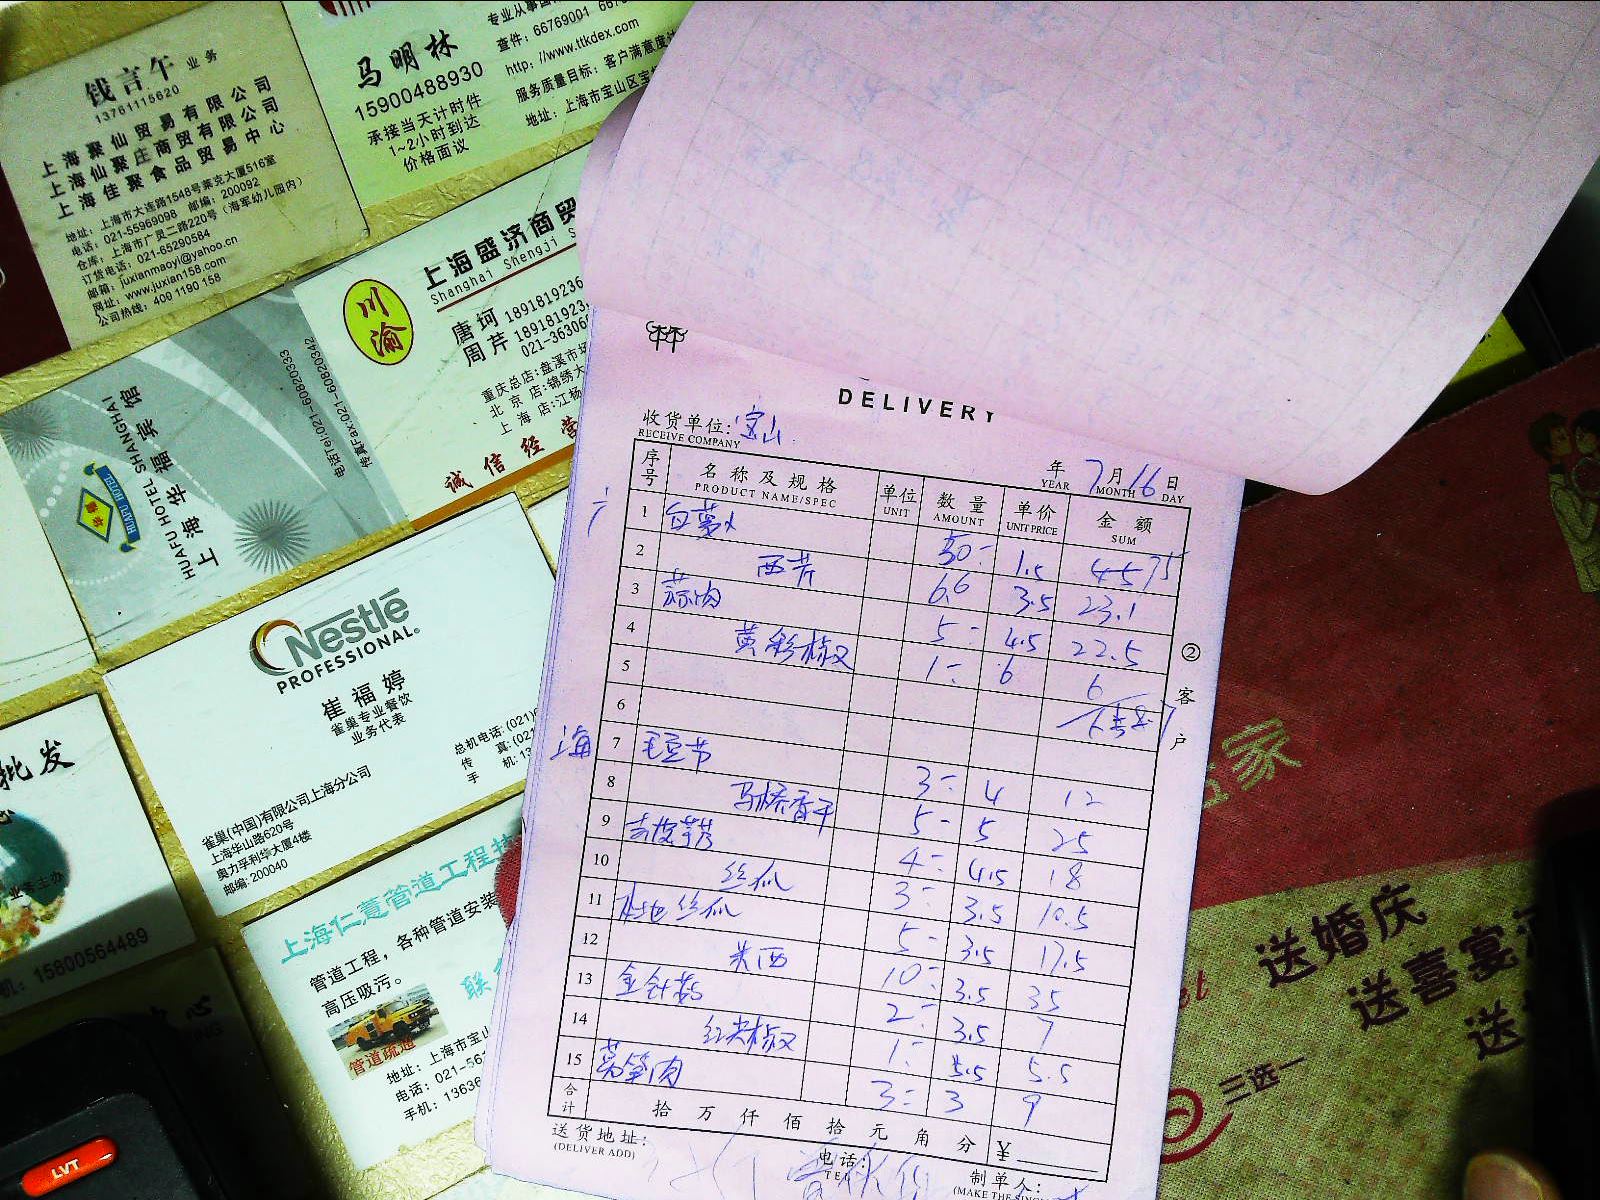 钱言午 业务
13761115620
上海聚仙贸易有限公司
上海仙聚庄商贸有限公司
上海佳聚食品贸易中心
地址：上海市大连路1548号莱克大厦516室
电话：021-55969098 邮编：200092
仓库：上海市广灵二路220号（海军幼儿园内）
订货电话：021-65290584
邮箱：juxianmaoyi@yahoo.cn
网址：www.juxian158.com
公司热线：400 1190 158
马明林
15900488930
承接当天计时件
1~2小时到达
价格面议
查件：66769001
http://www.ttkdex.com
服务质量目标：客户满意度
地址：上海市宝山区
川渝
上海盛济商贸
Shanghai Shengji
唐珂 18918192
周芹 18918192
021-3630
重庆总店：盘溪市场
北京店：锦绣大
上海店：江杨
诚信经营
HUAFU HOTEL
HUAFU HOTEL SHANGHAI
上海华福宾馆
电话Tel:021-60820333
传真Fax:021-60820342
Nestlé
PROFESSIONAL
崔福婷
雀巢专业餐饮
业务代表
总机电话：(021)
传 真：(021
手 机：13
雀巢(中国)有限公司上海分公司
上海华山路620号
奥力孚利华大厦4楼
邮编：200040
批发
业务主办
机：15800564489
上海仁薏管道工程
管道工程，各种管道安装
高压吸污。
联
管道疏通
地址：上海市宝山
电话：021-56
手机：13636
LVT
DELIVERY
收货单位：宝山
RECEIVE COMPANY
年 7月16日
YEAR MONTH DAY
序号 名称及规格 单位 数量 单价 金额
PRODUCT NAME/SPEC UNIT AMOUNT UNIT PRICE SUM
1 白萝卜 30 1.5 45
2 西芹 6.6 3.5 23.1
3 蒜肉 5 4.5 22.5
4 黄彩椒 1 6 6
5
6
上海
7 毛豆节 3 4 12
8 马桥香干 5 5 25
9 去皮芋艿 4 4.5 18
10 丝瓜 3 3.5 10.5
11 本地丝瓜 5 3.5 17.5
12 夹西 10 3.5 35
13 金针菇 2 3.5 7
14 红尖椒 1 5.5 5.5
15 莴笋肉 3 3 9
合计 拾 万 仟 佰 拾 元 角 分 ￥
送货地址：
(DELIVER ADD)
电话：
TEL
制单人：
② 客户
送婚庆
送喜宴
送
三选一